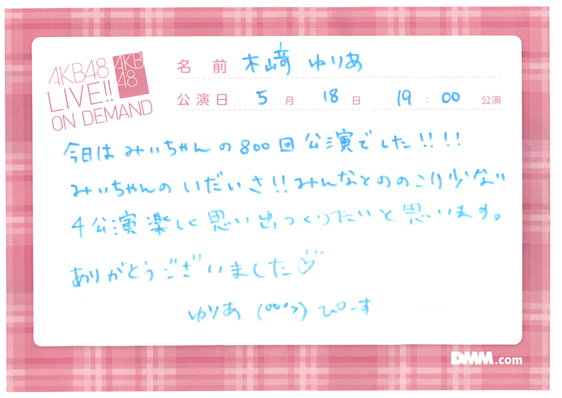 AKB48
LIVE!!
ON DEMAND
AKB
48
名前 木﨑 ゆりあ
公演日 5月 18日 19:00 公演
今日は みぃちゃんの 800回 公演でした!!!!
みぃちゃんの いだいさ!! みんなとののこり少ない
4公演 楽しく 思い出つくりたいと思います。
ありがとうございました♡
ゆりあ (°°°>) ぴーす
DMM.com